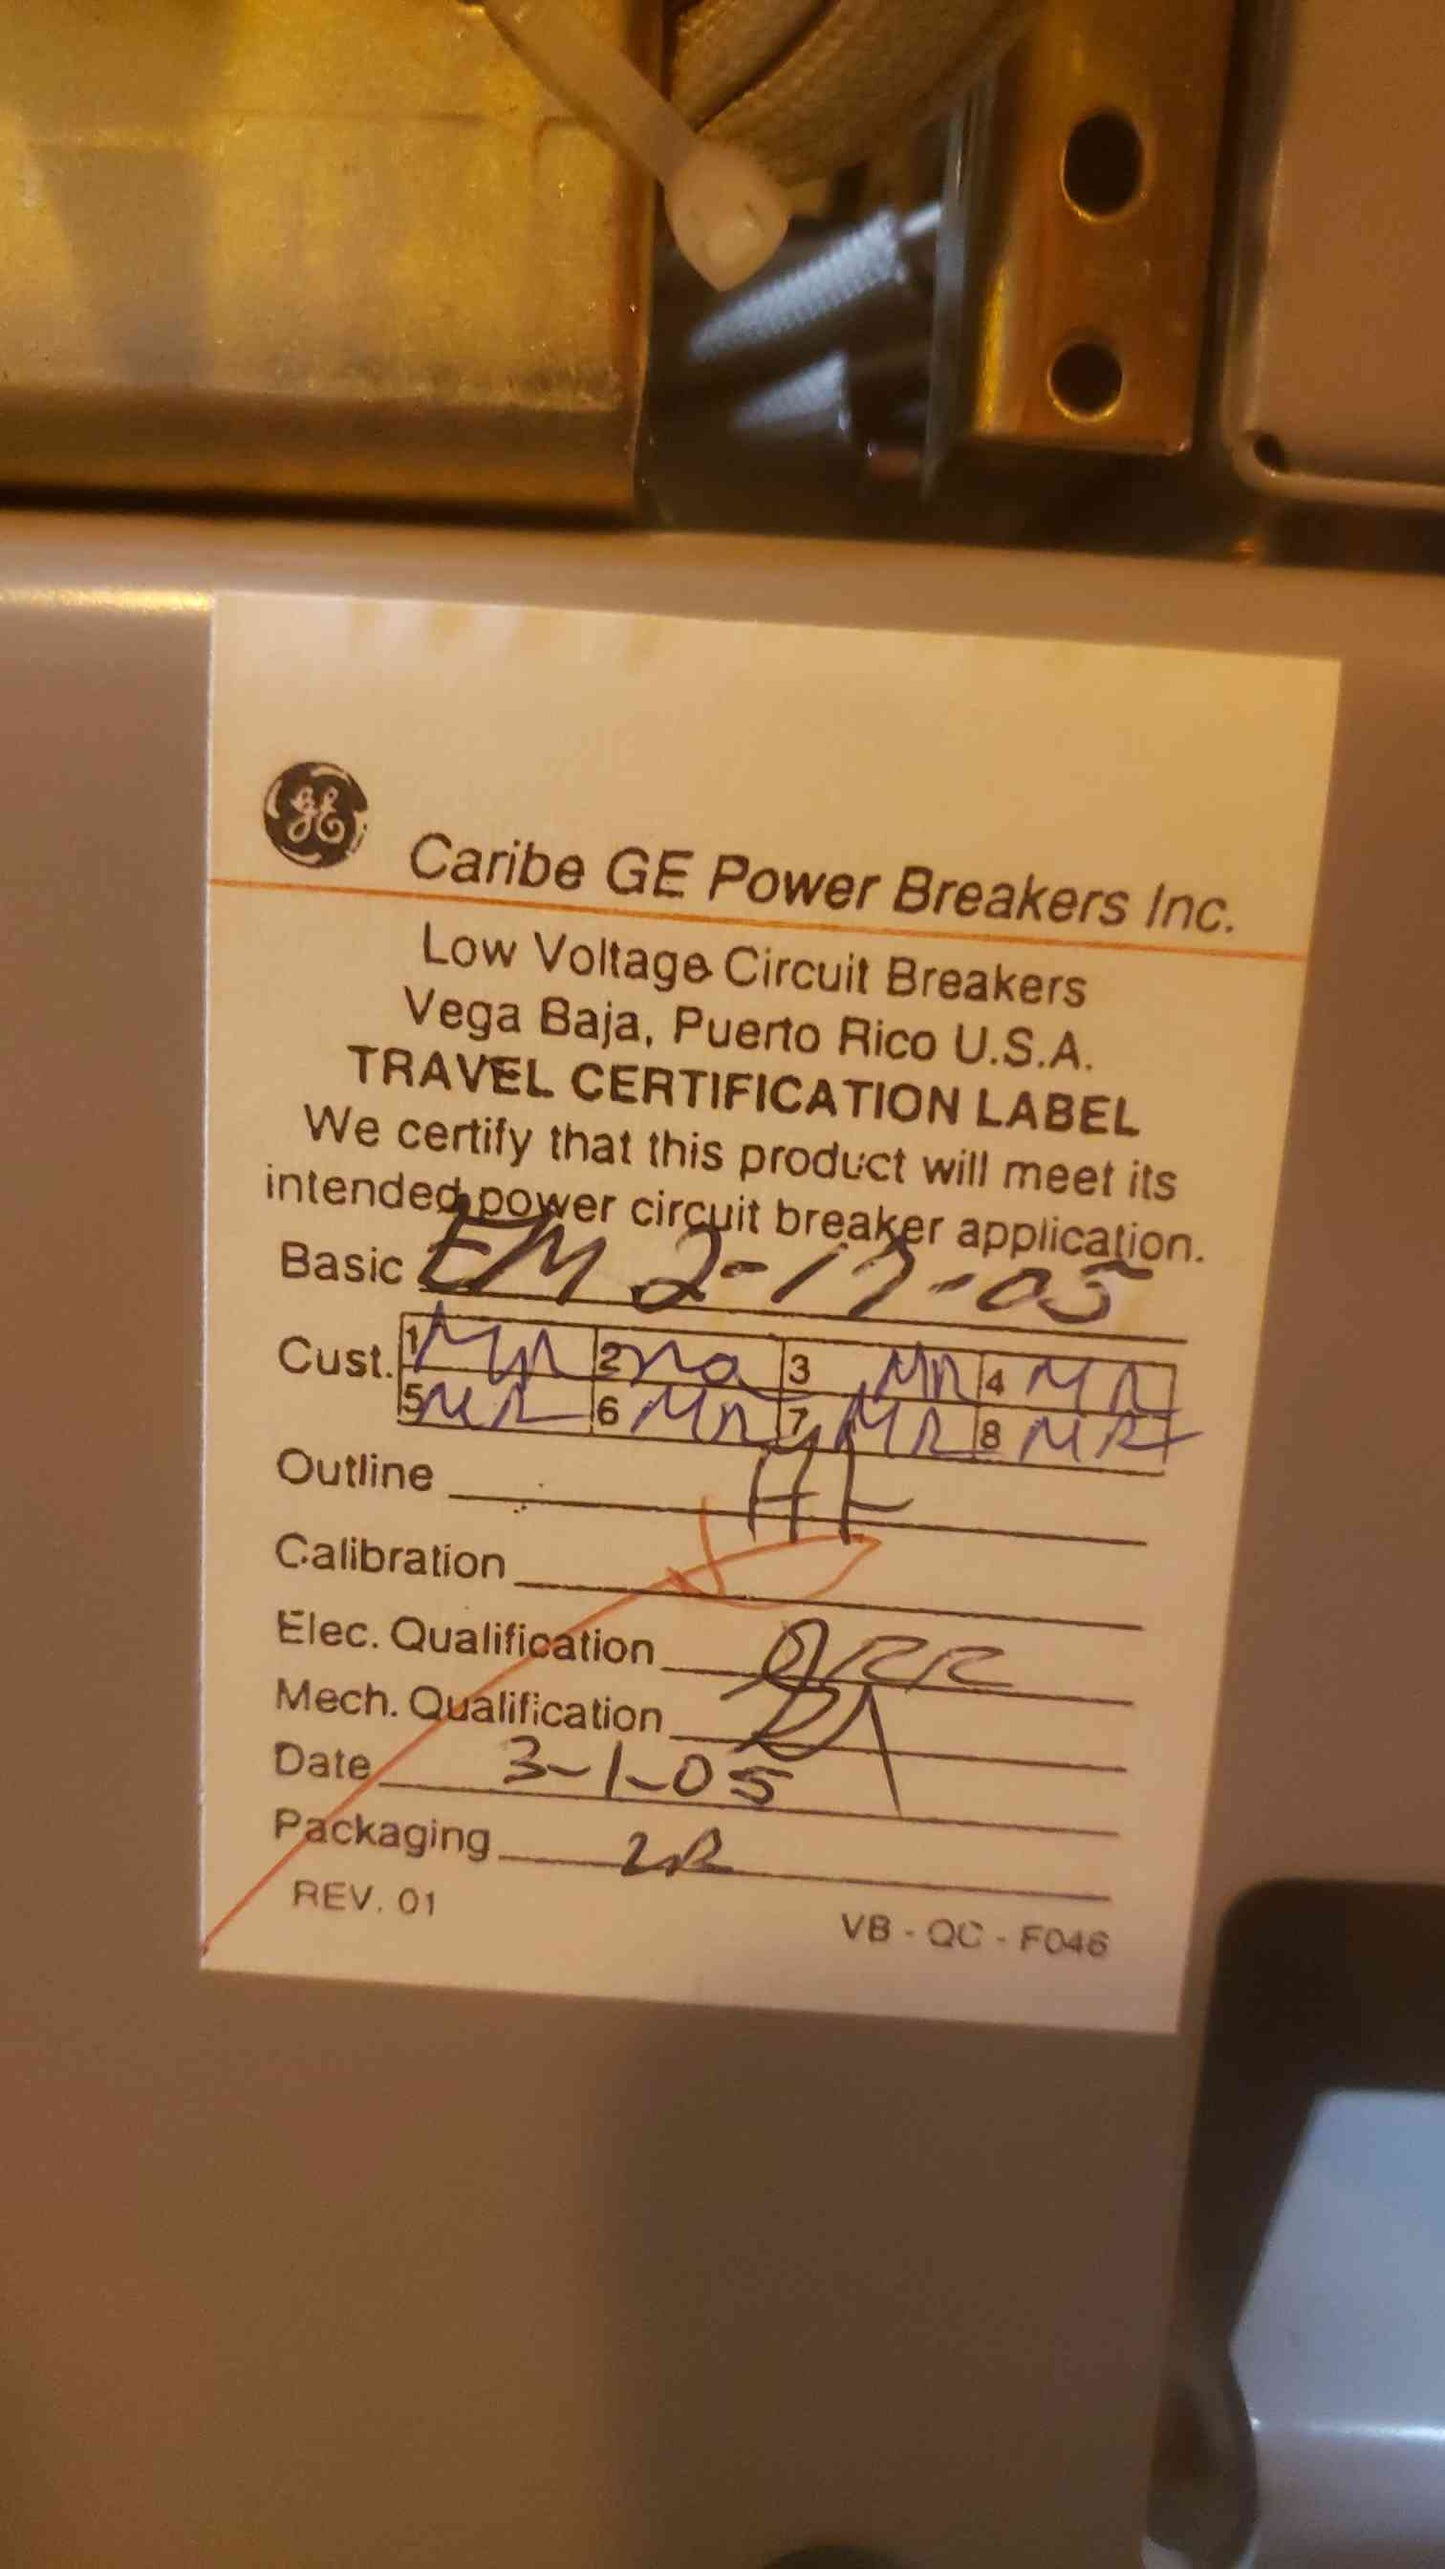 GE
Caribe GE Power Breakers Inc.
Low Voltage Circuit Breakers
Vega Baja, Puerto Rico U.S.A.
TRAVEL CERTIFICATION LABEL
We certify that this product will meet its
intended power circuit breaker application.
Basic EM 2-17-05
Cust. 1 MR 2 3 MR 4 MR
5 MR 6 MR 7 MR 8 MR
Outline
Calibration
Elec. Qualification
Mech. Qualification
Date 3-1-05
Packaging
REV. 01 VB - QC - F046